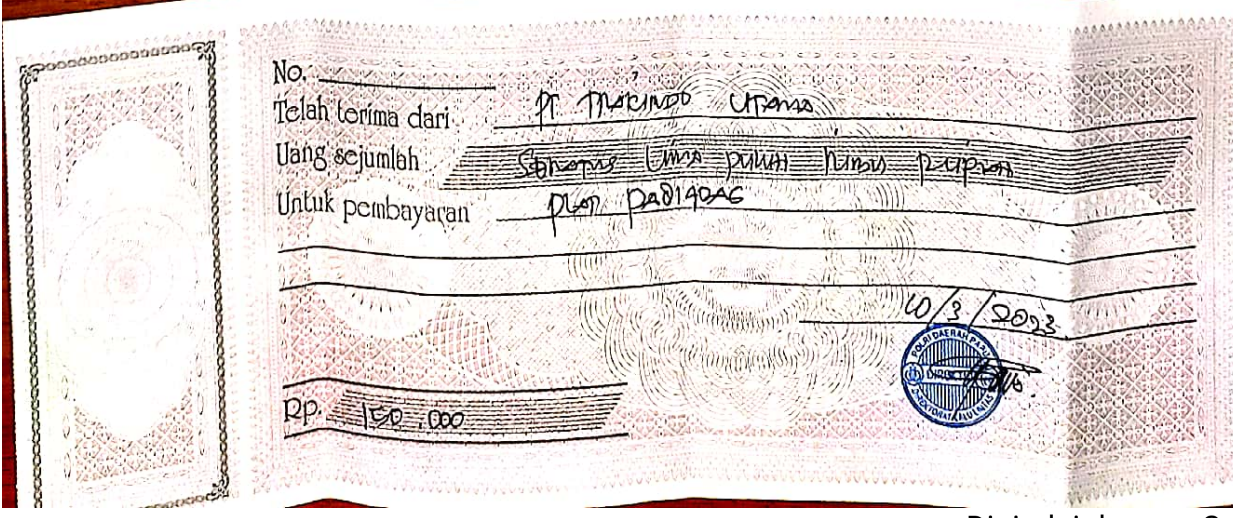 No.
Telah terima dari PT TRAKINDO UTAMA
Uang sejumlah Seratus Lima puluh Ribu Rupiah
Untuk pembayaran
Rp. 150.000
/3/2023
POLRI DAERAH
DIREKTORAT LALU LINTAS